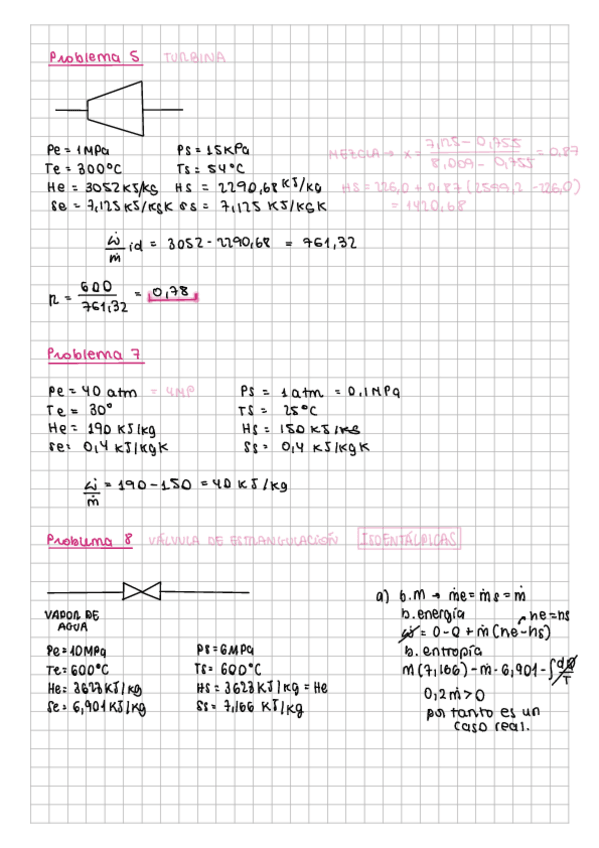 Problema 5 TURBINA
Pe = 1MPa Ps = 15KPa
Te = 300°C Ts = 54°C
He = 3052 KJ/kg Hs = 2290,68 KJ/kg
Se = 7,125 KJ/KgK Ss = 7,125 KJ/KGK
MEZCLA → x = (7,125 - 0,755)/(8,009 - 0,755) = 0,87
HS = 226,0 + 0,87 (2599,2 - 226,0)
= 1420,68
ω̇/ṁ id = 3052 - 2290,68 = 761,32
n = 600/761,32 = 0,78
Problema 7
Pe = 40 atm = 4MP Ps = 1 atm = 0,1MPa
Te = 30° TS = 25°C
He = 190 KJ/kg Hs = 150 KJ/KG
Se = 0,4 KJ/kgK Ss = 0,4 KJ/KgK
ω̇/ṁ = 190 - 150 = 40 KJ/kg
Problema 8 VÁLVULA DE ESTRANGULACIÓN ISOENTÁLPICAS
VAPOR DE
AGUA
Pe = 10MPa Ps = 6MPa
Te = 600°C Ts = 600°C
He = 3623 KJ/kg Hs = 3623 KJ/kg = He
Se = 6,901 KJ/kg Ss = 7,166 KJ/kg
a) b.M → ṁe = ṁs = ṁ
b. energía he = hs
ω̇ = 0 - Q + ṁ (he - hs)
b. entropía
ṁ (7,166) - ṁ · 6,901 - ∫dQ/T
0,2ṁ > 0
por tanto es un
caso real.